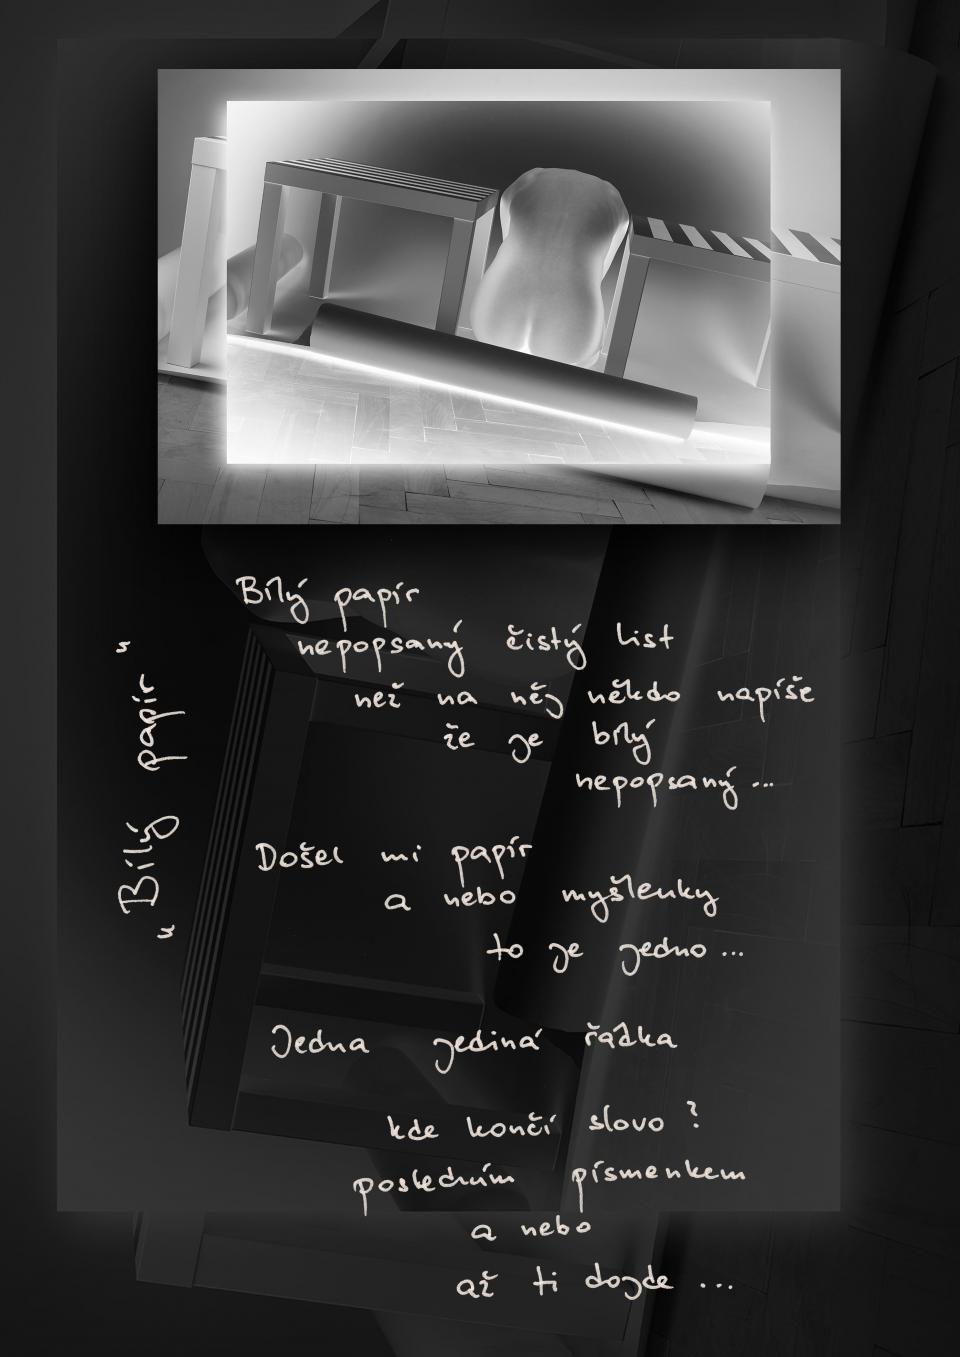 „Bílý papír"
Bílý papír
nepopsaný čistý list
než na něj někdo napíše
že je bílý
nepopsaný ...
Došel mi papír
a nebo myšlenky
to je jedno ...
Jedna jediná řádka
kde končí slovo ?
posledním písmenkem
a nebo
až ti dojde ...